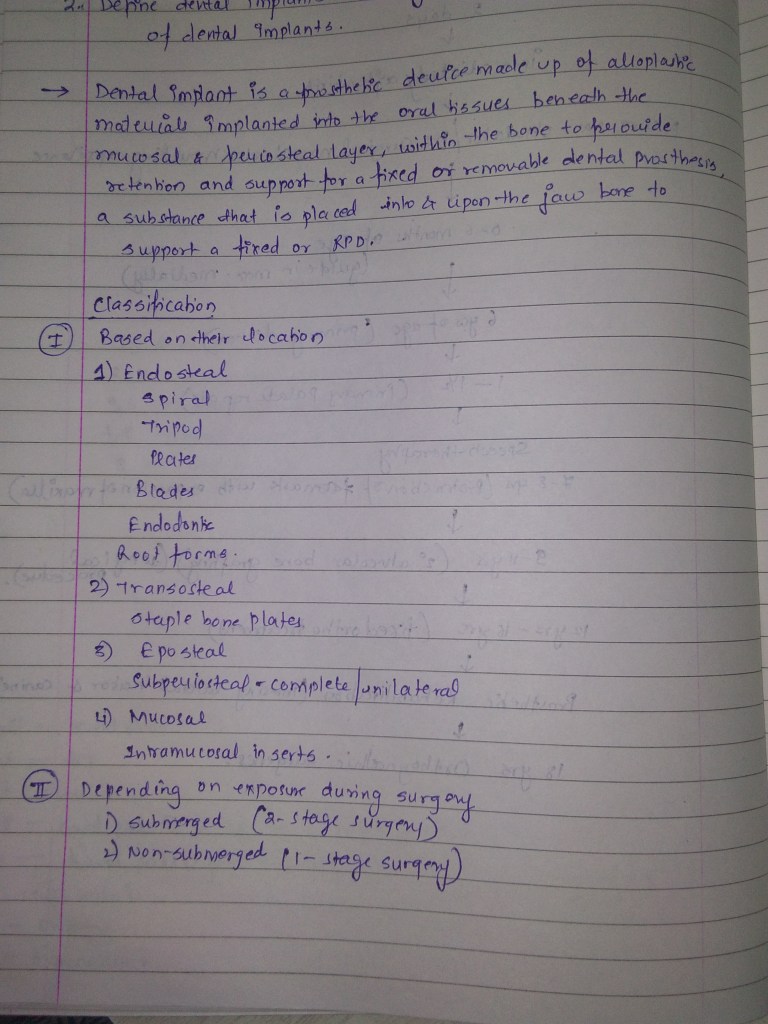 2. Define dental
of dental implants.
→ Dental implant is a prosthetic device made up of alloplastic
materials implanted into the oral tissues beneath the
mucosal & periosteal layer, within the bone to provide
retention and support for a fixed or removable dental prosthesis,
a substance that is placed into & upon the jaw bone to
support a fixed or RPD.
Classification
I Based on their location
1) Endosteal
Spiral
Tripod
Plates
Blades
Endodontic
Root forms.
2) Transosteal
Staple bone plates
3) Eposteal
Subperiosteal - complete/unilateral
4) Mucosal
Intramucosal inserts.
II Depending on exposure during surgery
1) submerged (2-stage surgery)
2) Non-submerged (1-stage surgery)